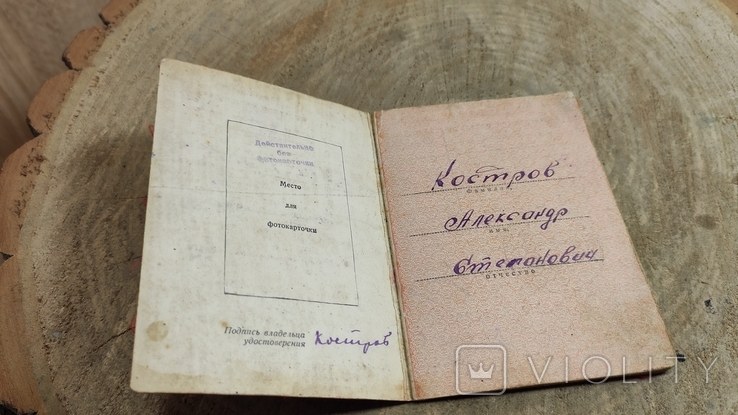 Действительно
без
фотокарточки
Место
для
фотокарточки
Подпись владельца
удостоверения
Костров
Костров
фамилия
Александр
имя
Степанович
отчество
VIOLITY